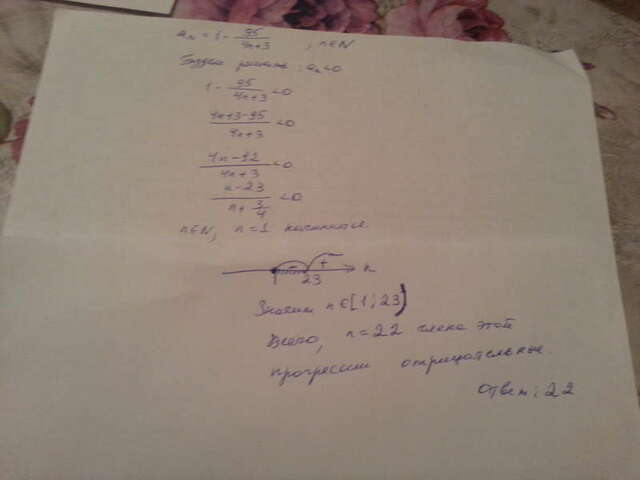 aₙ = 1 - 95/(4n+3), n∈N
Будем решать: aₙ<0
1 - 95/(4n+3) <0
(4n+3-95)/(4n+3) <0
(4n-92)/(4n+3) <0
(n-23)/(n+3/4) <0
n∈N, n=1 начинается.
- +
1 23 n
Значит n∈[1;23)
Всего, n=22 члена этой
прогрессии отрицательные.
Ответ: 22